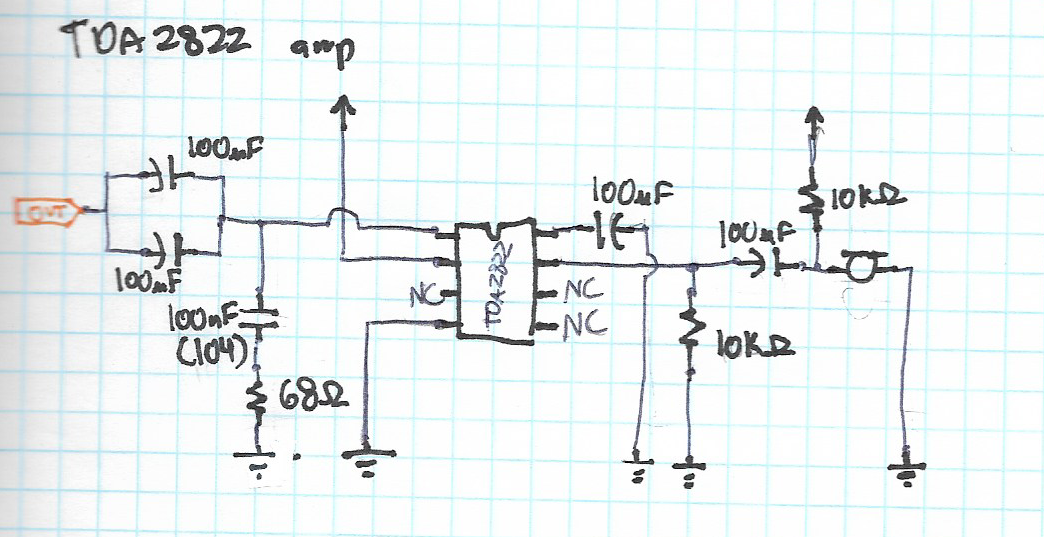 TDA2822 amp
100uF
OUT
100uF
100nF
(104)
68Ω
NC
TDA2822
NC
NC
100uF
100uF
10KΩ
10KΩ